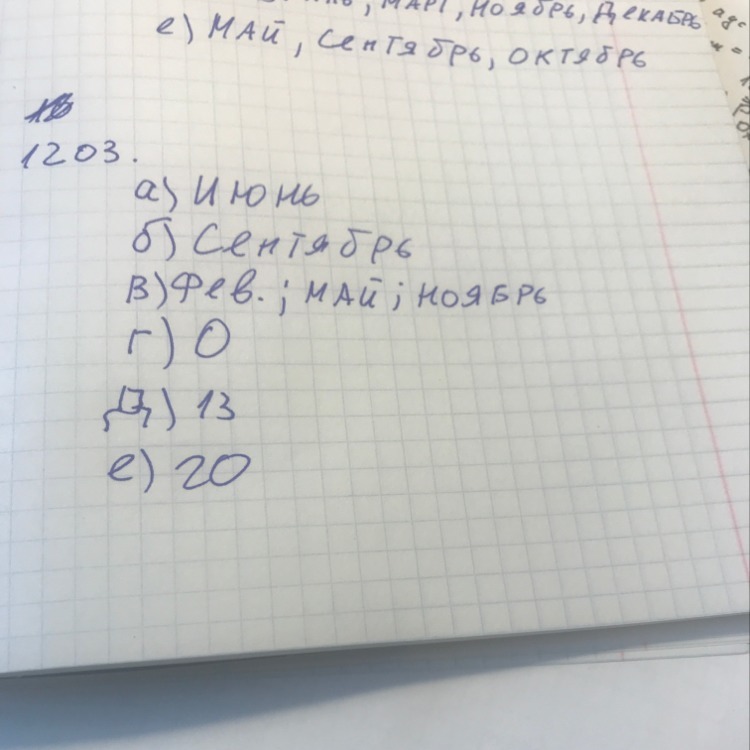 МАРТ, НОЯБРЬ, ДЕКАБРЬ
е) МАЙ, Сентябрь, ОКТЯБРЬ
1203.
а) ИЮНЬ
б) Сентябрь
В) Фев.; МАЙ; НОЯБРЬ
г) 0
Д) 13
е) 20